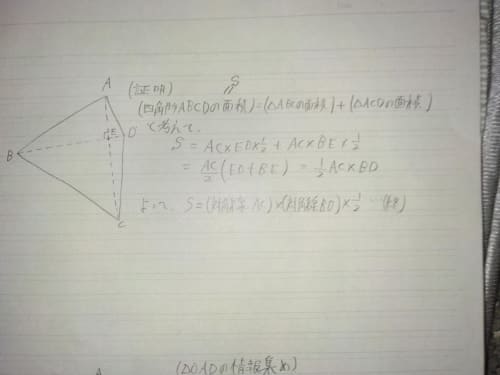 A
(証明)
S
(四角形ABCDの面積)=(△ABCの面積)+(△ACDの面積)
と考えて、
E
D
B
S = AC×ED×1/2 + AC×BE×1/2
= AC/2 (ED+BE) = 1/2 AC×BD
C
よって、S=(対角線AC)×(対角線BD)×1/2 (終)
(△OADの情報集め)
A